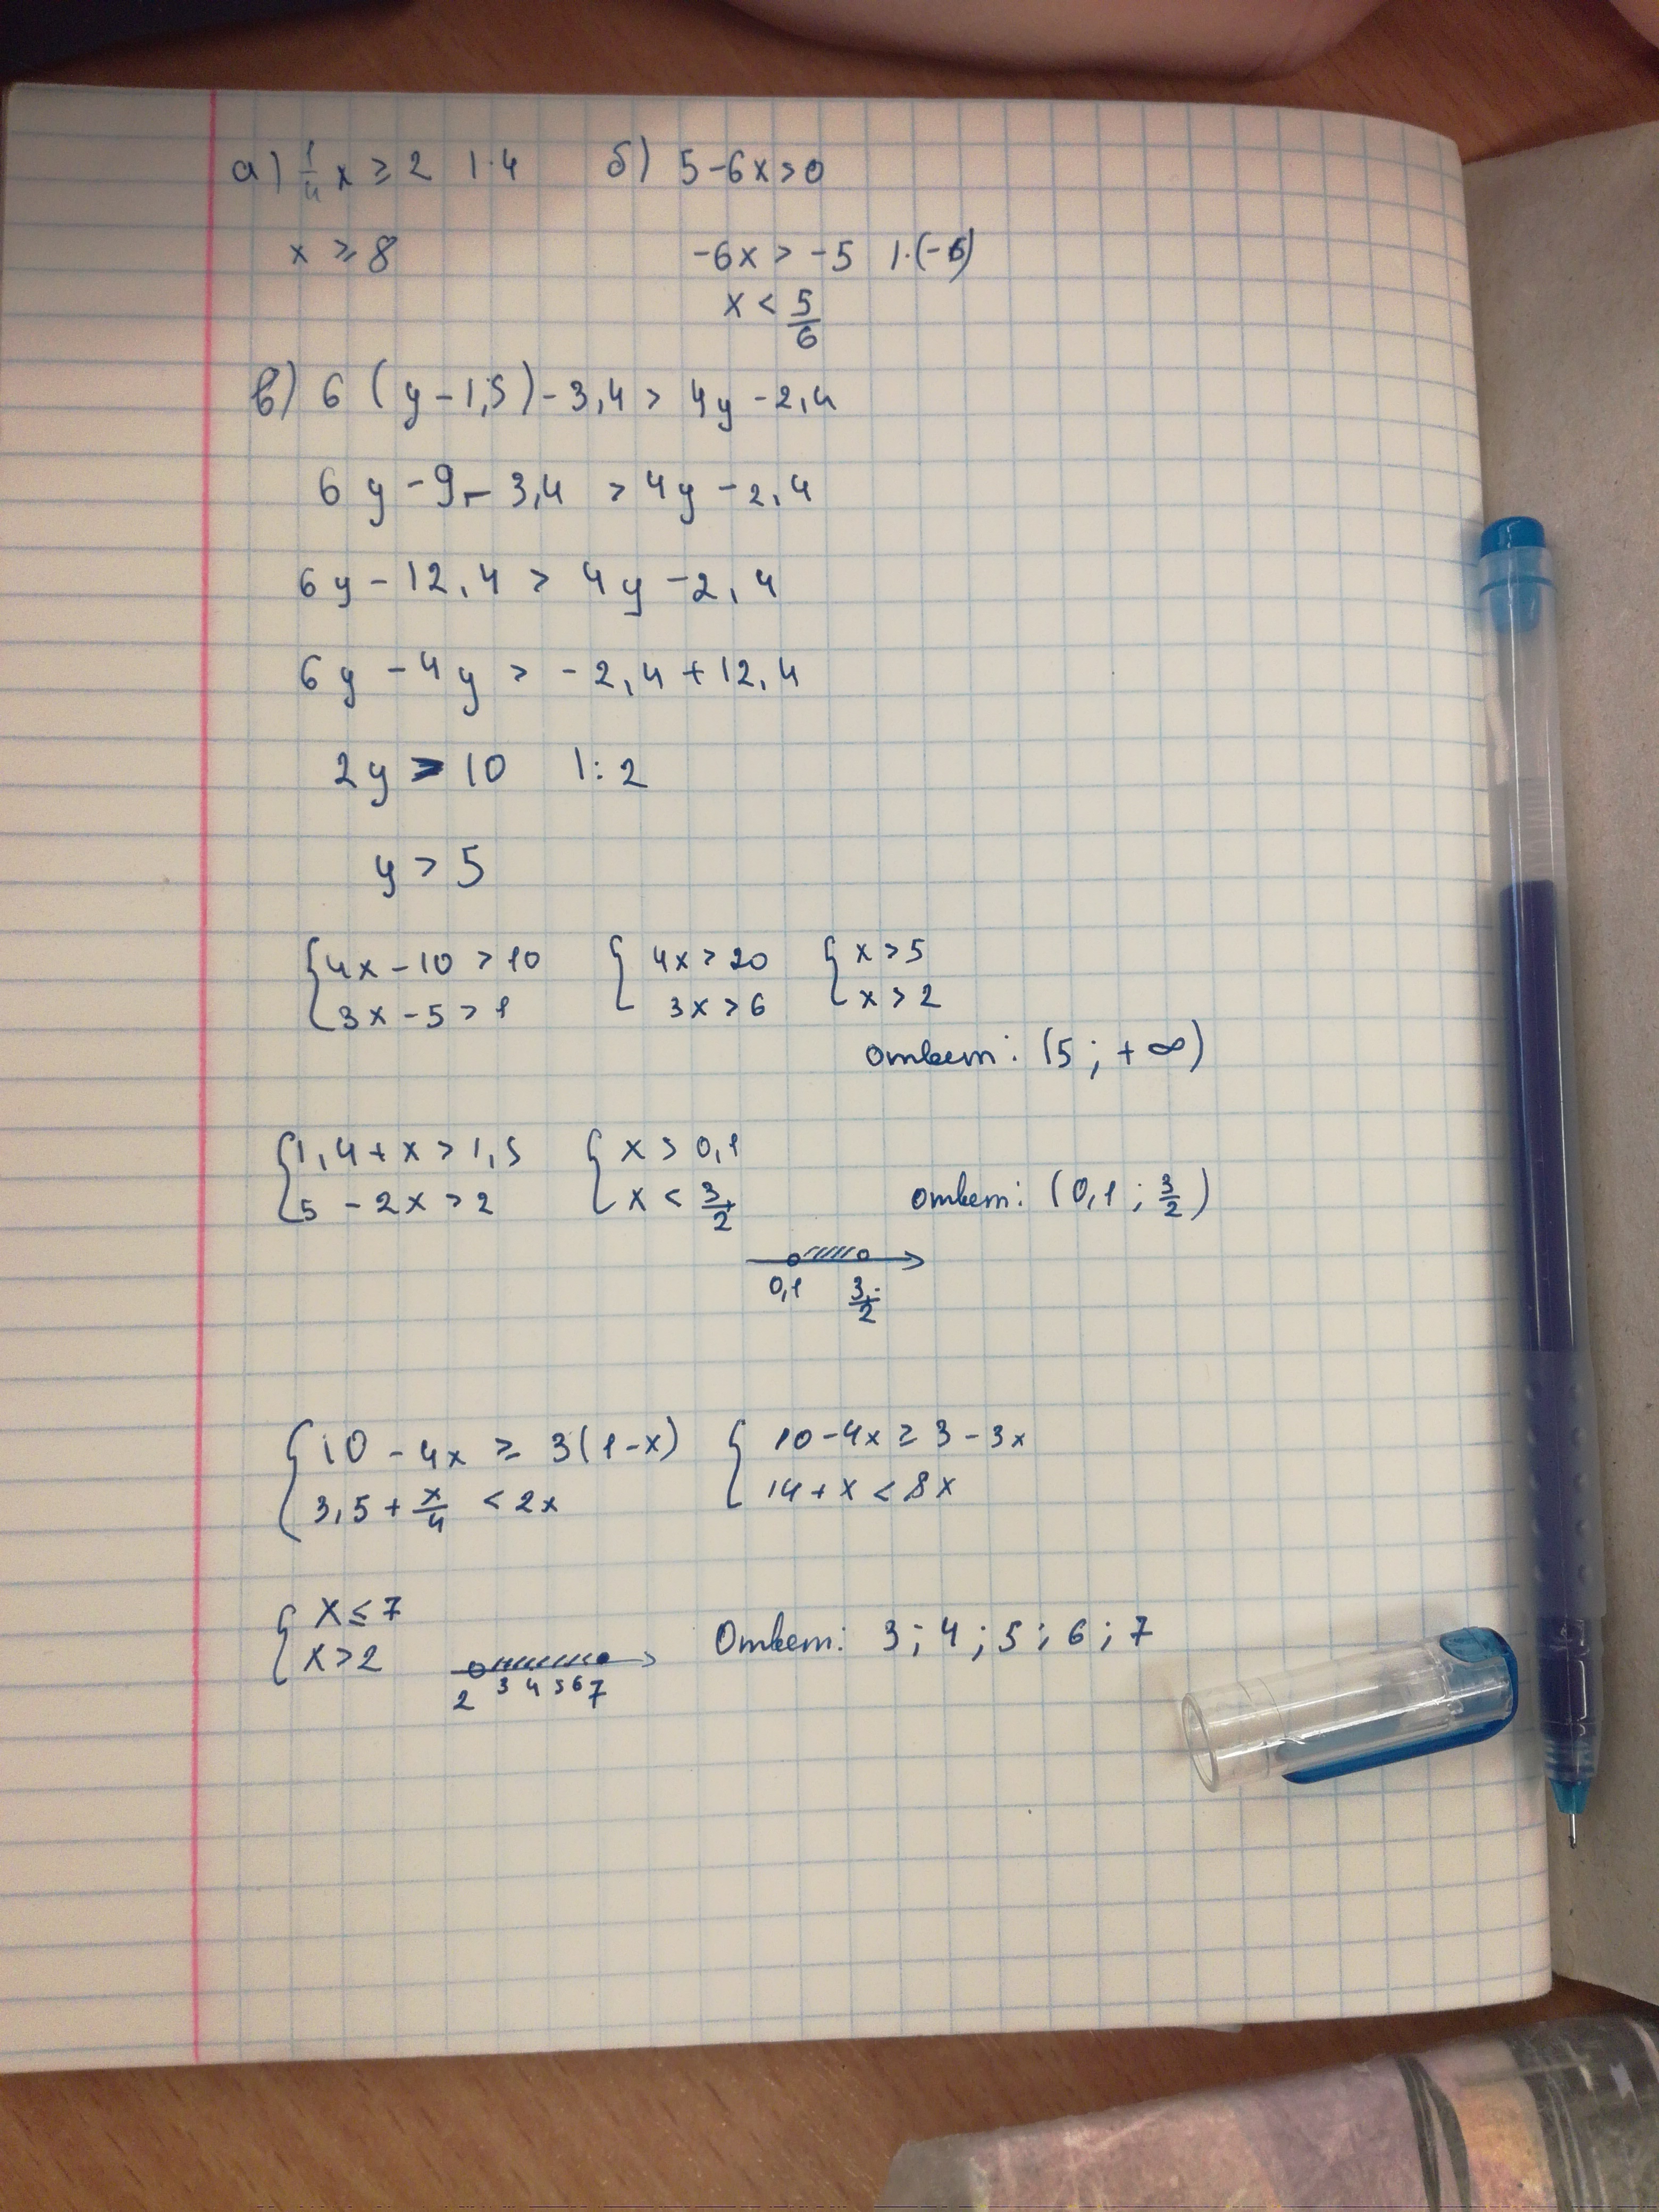 а) 1/4 x ≥ 2 | · 4
x ≥ 8
б) 5 - 6x > 0
-6x > -5 | · (-6)
x < 5/6
в) 6 (y - 1,5) - 3,4 > 4y - 2,4
6y - 9 - 3,4 > 4y - 2,4
6y - 12,4 > 4y - 2,4
6y - 4y > -2,4 + 12,4
2y > 10 | : 2
y > 5
{ 4x - 10 > 10 { 4x > 20 { x > 5
3x - 5 > 1 3x > 6 x > 2
Ответ: (5 ; +∞)
{ 1,4 + x > 1,5 { x > 0,1
5 - 2x > 2 x < 3/2
Ответ: (0,1 ; 3/2)
0,1 3/2
{ 10 - 4x ≥ 3(1 - x) { 10 - 4x ≥ 3 - 3x
3,5 + x/4 < 2x 14 + x < 8x
{ x ≤ 7
x > 2
2 3 4 5 6 7
Ответ: 3 ; 4 ; 5 ; 6 ; 7